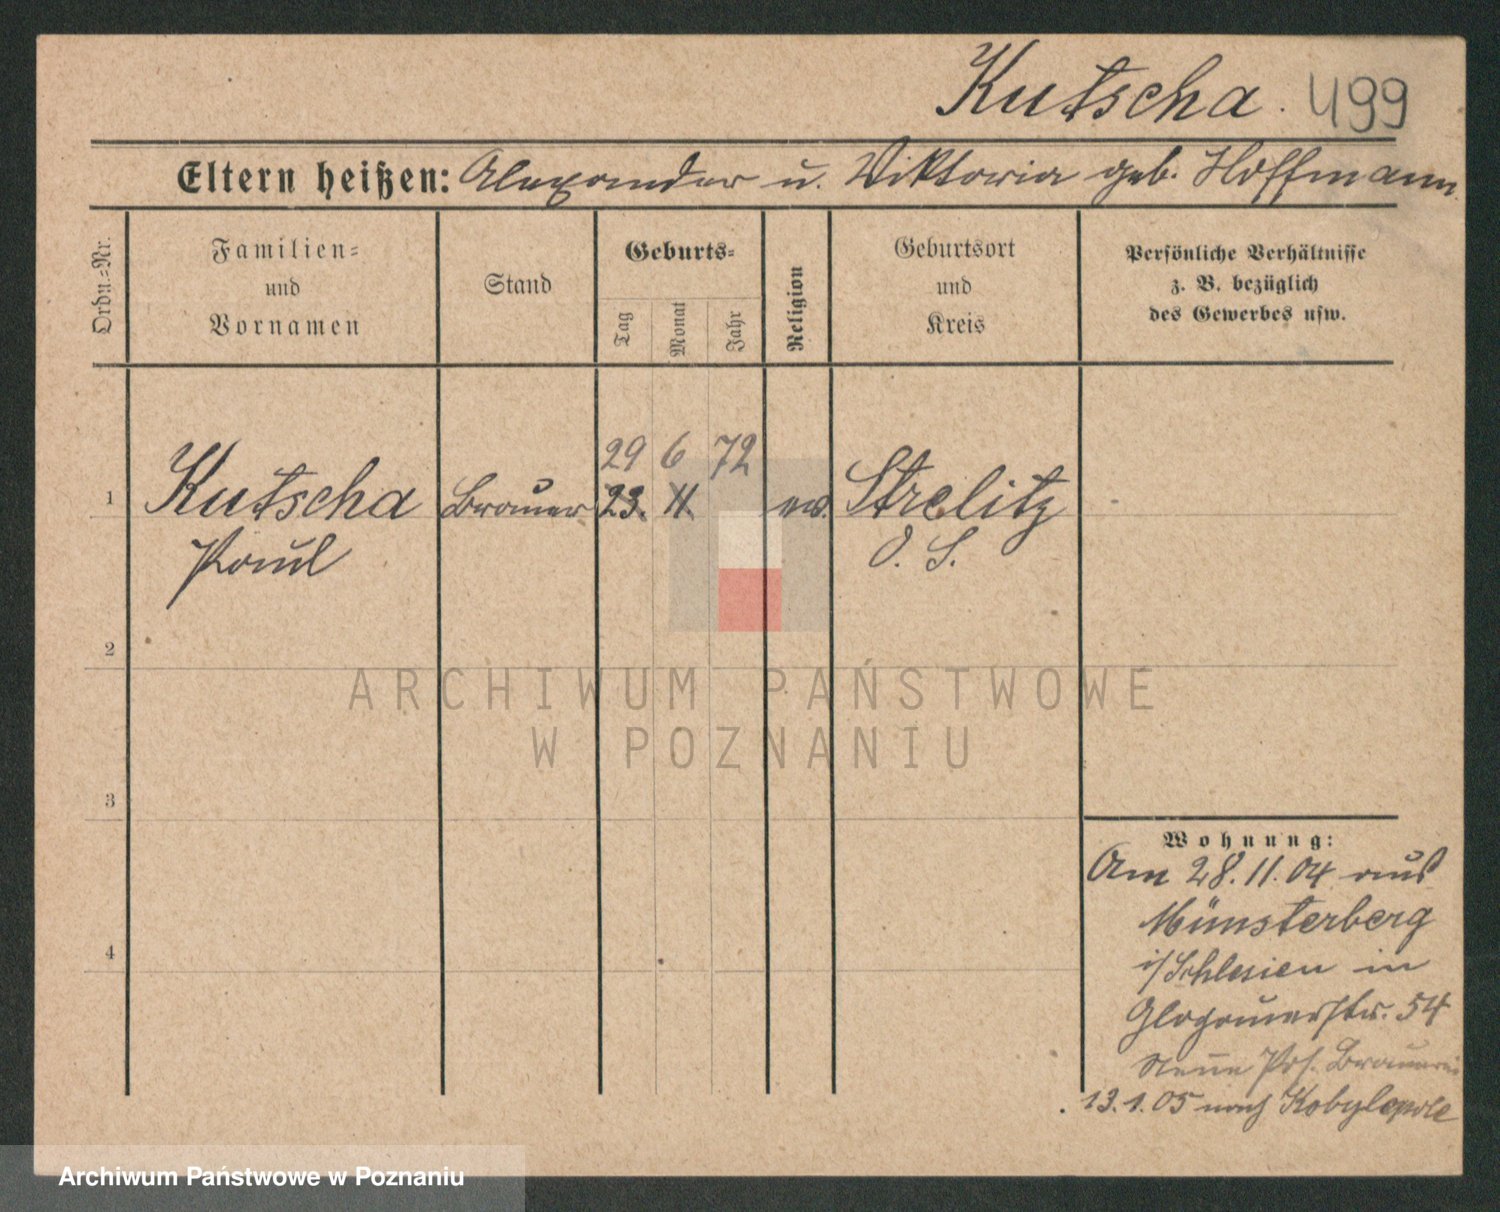 Kutscha. 499
Eltern heißen: Alexander u. Viktoria geb. Hoffmann.
Ordn.-Nr.
Familien-
und
Vornamen
Stand
Geburts-
Tag
Monat
Jahr
Religion
Geburtsort
und
Kreis
Persönliche Verhältnisse
z. B. bezüglich
des Gewerbes usw.
29 6 72
1 Kutscha Brauer 23. 11. ev. Strelitz
Paul O. S.
2
ARCHIWUM PAŃSTWOWE
W POZNANIU
3
4
Wohnung:
Am 28.11.04 aus
Münsterberg
i/Schlesien in
Glogauerstr. 54
Neue Pos. Brauerei
13.1.05 nach Kobylepole
Archiwum Państwowe w Poznaniu